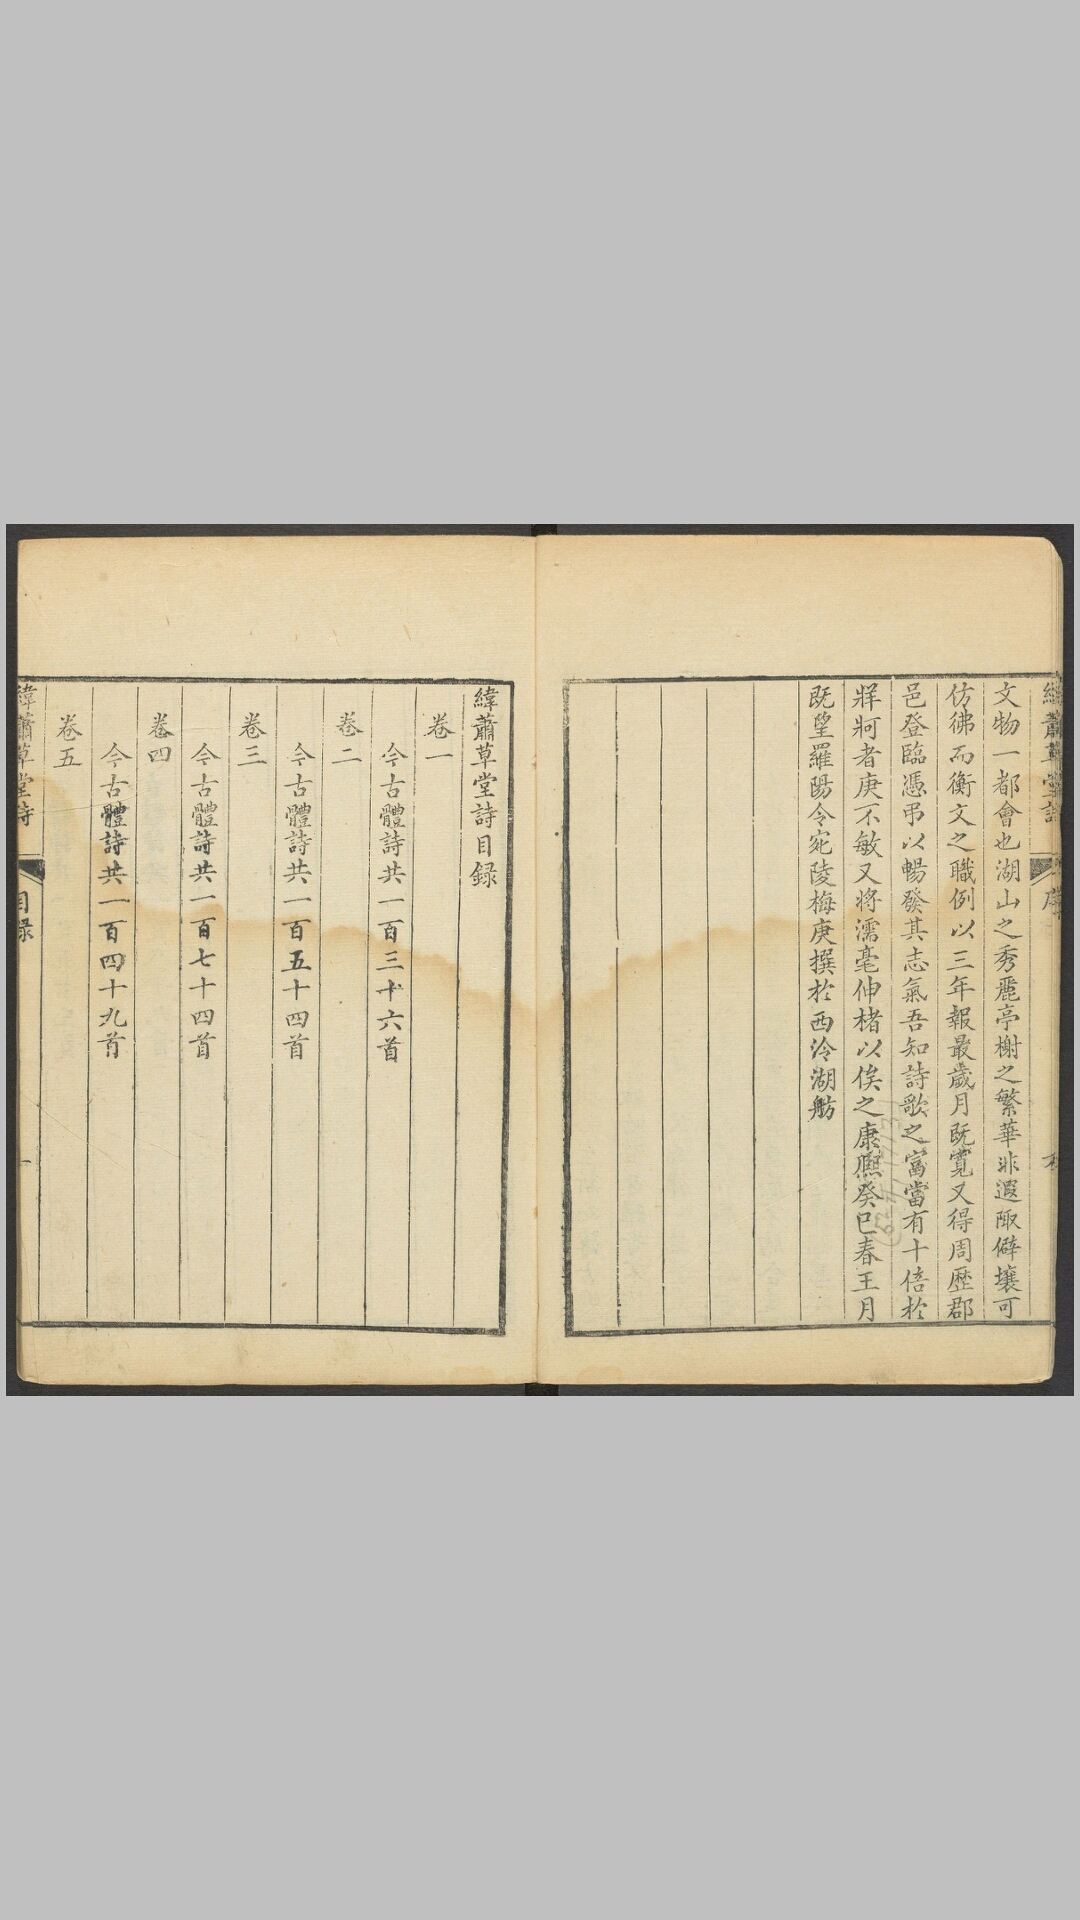 文物一都會也湖山之秀麗亭榭之繁華非遐陬僻壤可
仿彿而衡文之職例以三年報最歲月既寬又得周歷郡
邑登臨憑弔以暢發其志氣吾知詩歌之富當有十倍於
牂牁者庚不敏又將濡毫伸楮以俟之康熙癸巳春王月
既望羅陽令宛陵梅庚撰於西泠湖舫
緯蕭草堂詩目録
卷一
今古體詩共一百三十六首
卷二
今古體詩共一百五十四首
卷三
今古體詩共一百七十四首
卷四
今古體詩共一百四十九首
卷五
緯蕭草堂詩 目録 一